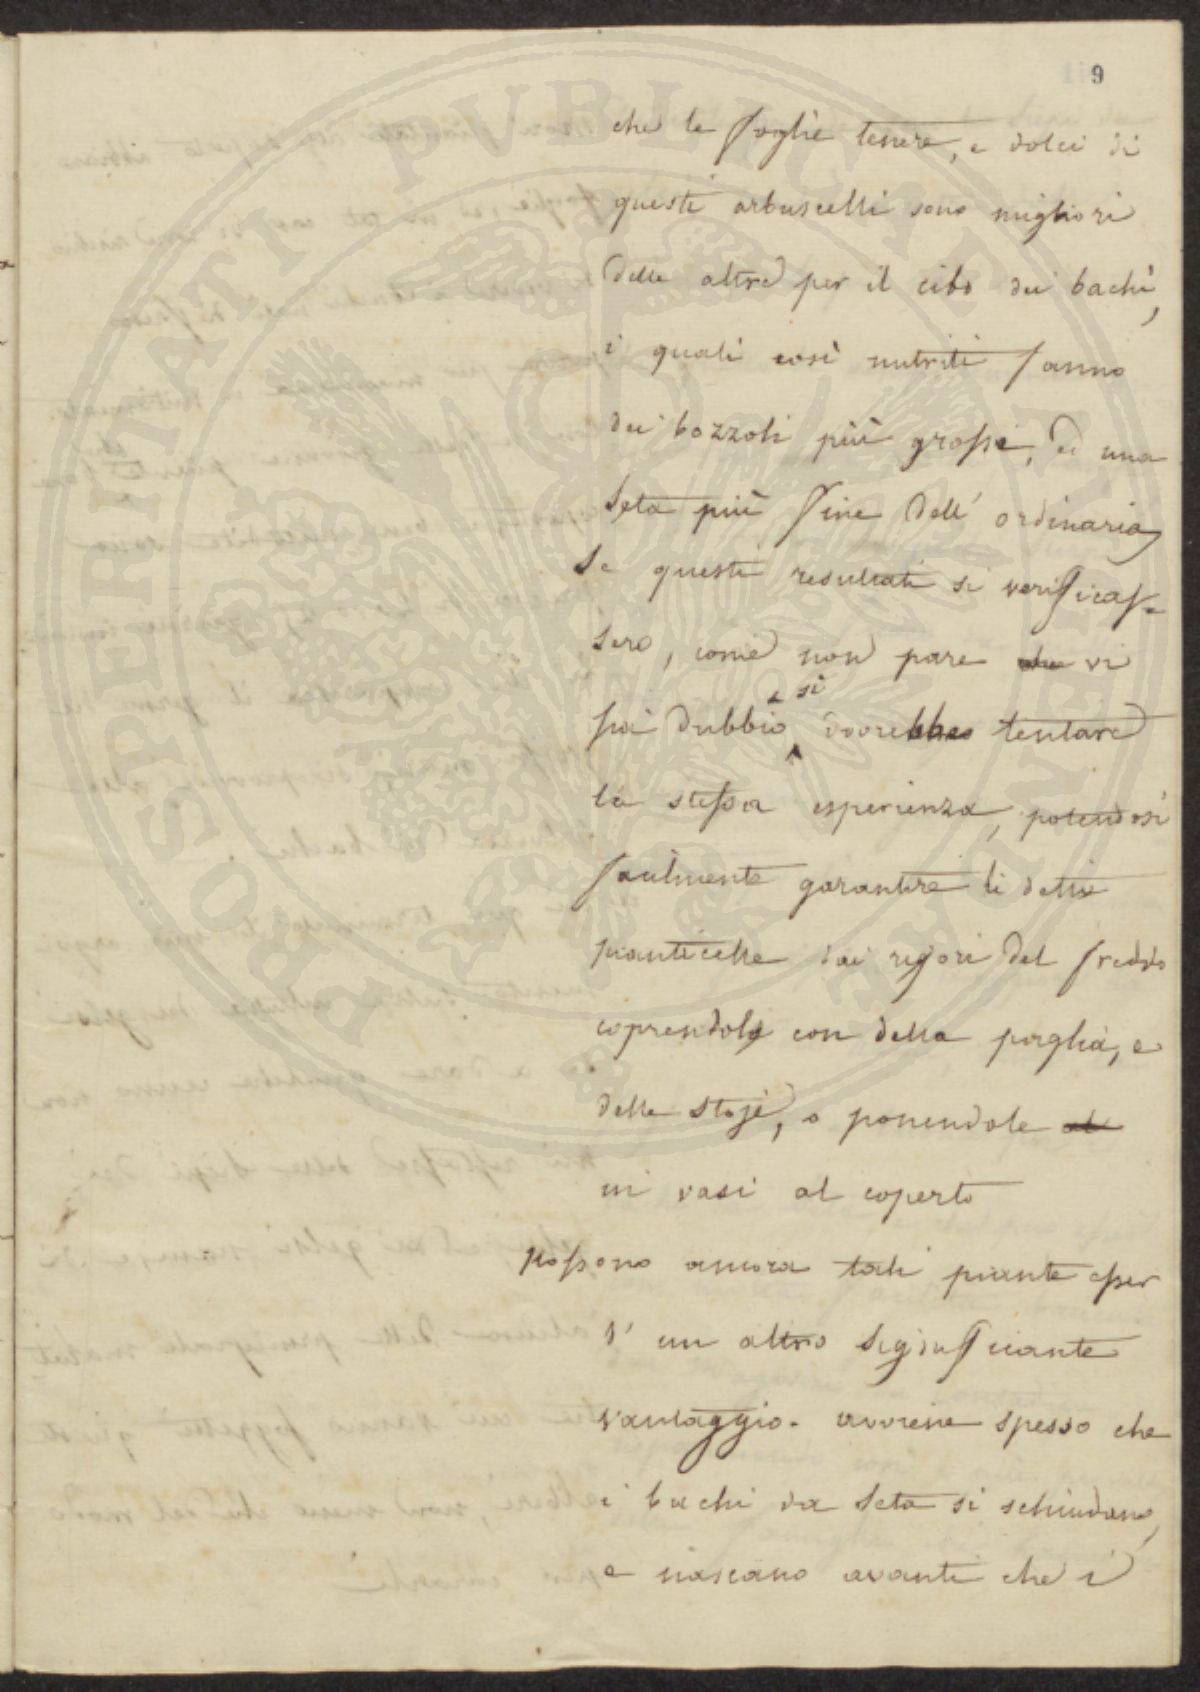 9
che le foglie tenere, e dolci di
questi arbuscelli sono migliori
delle altre per il cibo dei bachi,
i quali così nutriti fanno
dei bozzoli più grossi, ed una
seta più fine dell' ordinaria
Se questi resultati si verificas-
sero, come non pare che vi
sia dubbio, si dovrebbe tentare
la stessa esperienza, potendosi
facilmente garantire le dette
pianticelle dai rigori del freddo
coprendole con della paglia, e
delle stoje, o ponendole al
in vasi al coperto
Possono ancora tali piante esser
d' un altro significante
vantaggio. avviene spesso che
i bachi da seta si schiudano,
e nascano avanti che i
PROSPERITATI PUBLICAE AUGENDAE